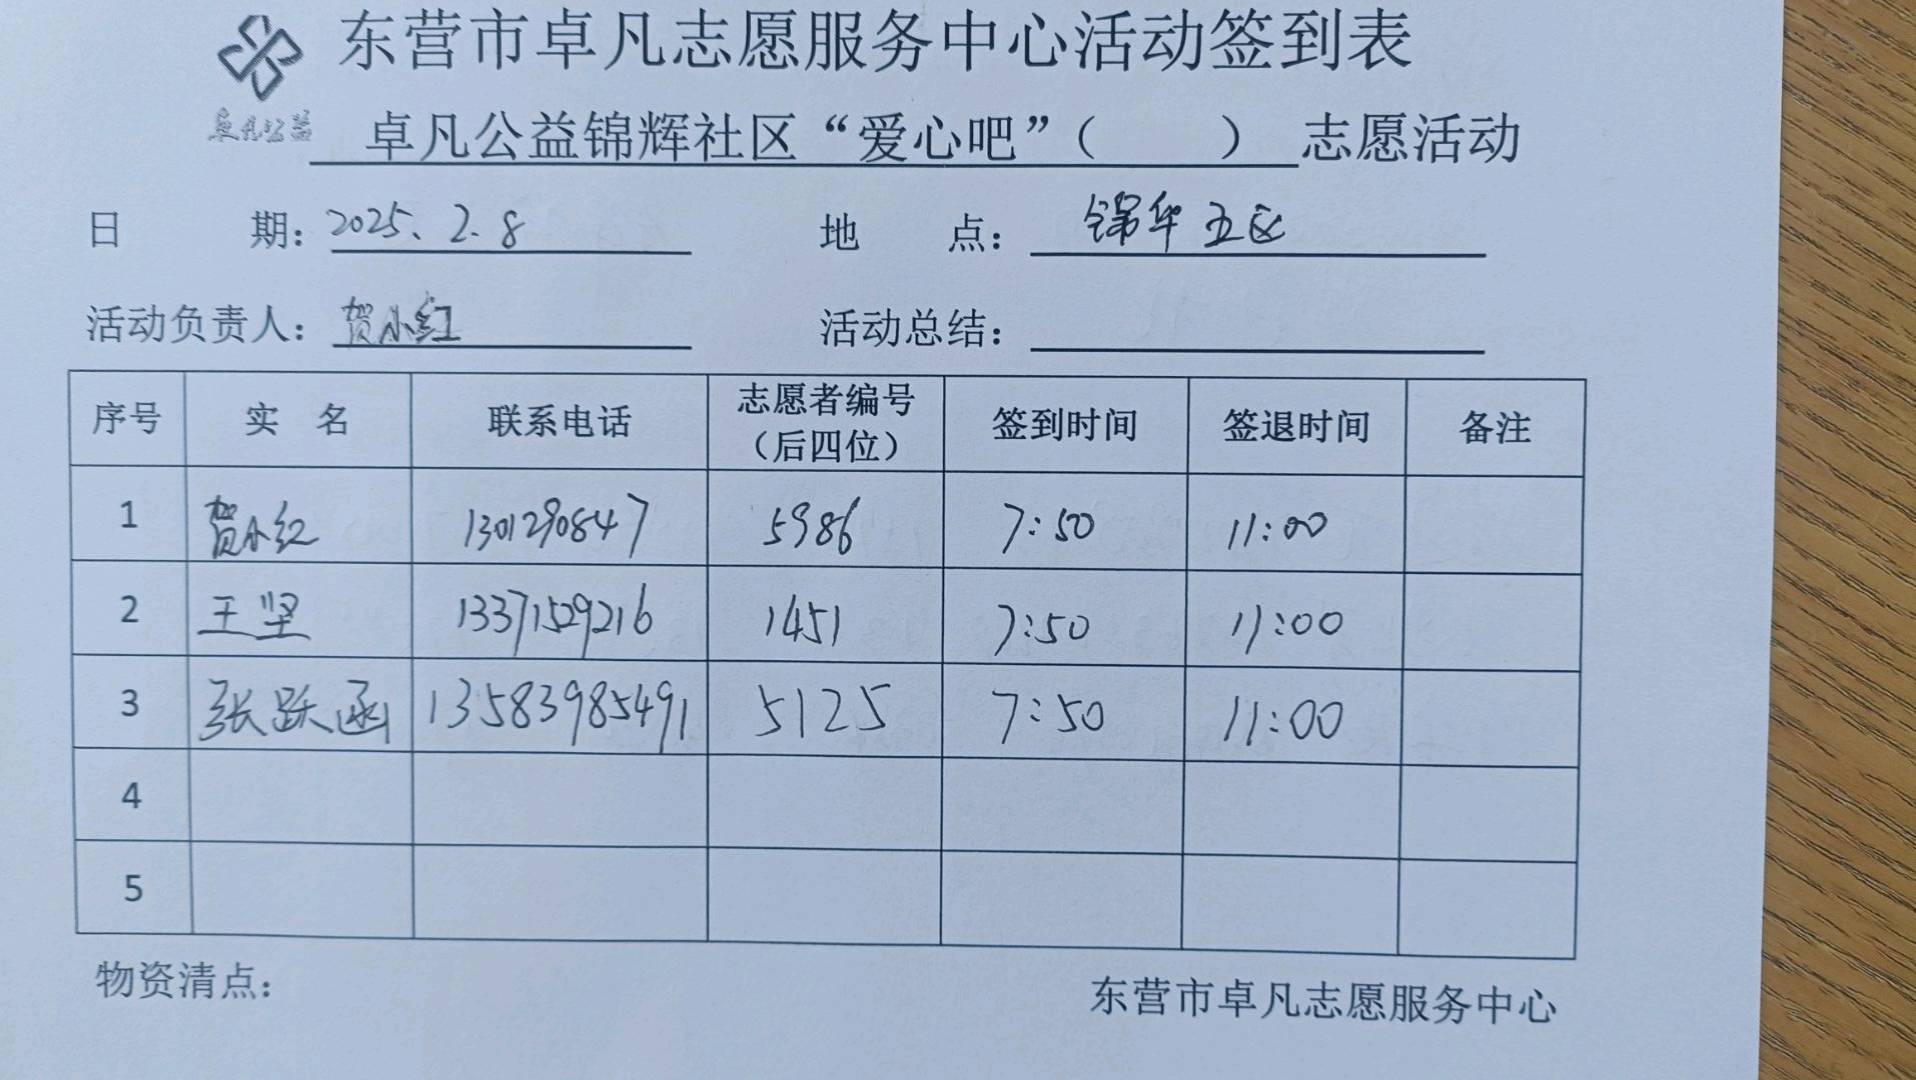 东营市卓凡志愿服务中心活动签到表
卓凡公益
卓凡公益锦辉社区“爱心吧”（ ）志愿活动
日 期：2025.2.8 地 点：锦华五区
活动负责人：贺小红 活动总结：
序号 实 名 联系电话 志愿者编号（后四位） 签到时间 签退时间 备注
1 贺小红 1301290847 5986 7:50 11:00
2 王坚 13371529216 1451 7:50 11:00
3 张跃函 13583985491 5125 7:50 11:00
4
5
物资清点：
东营市卓凡志愿服务中心